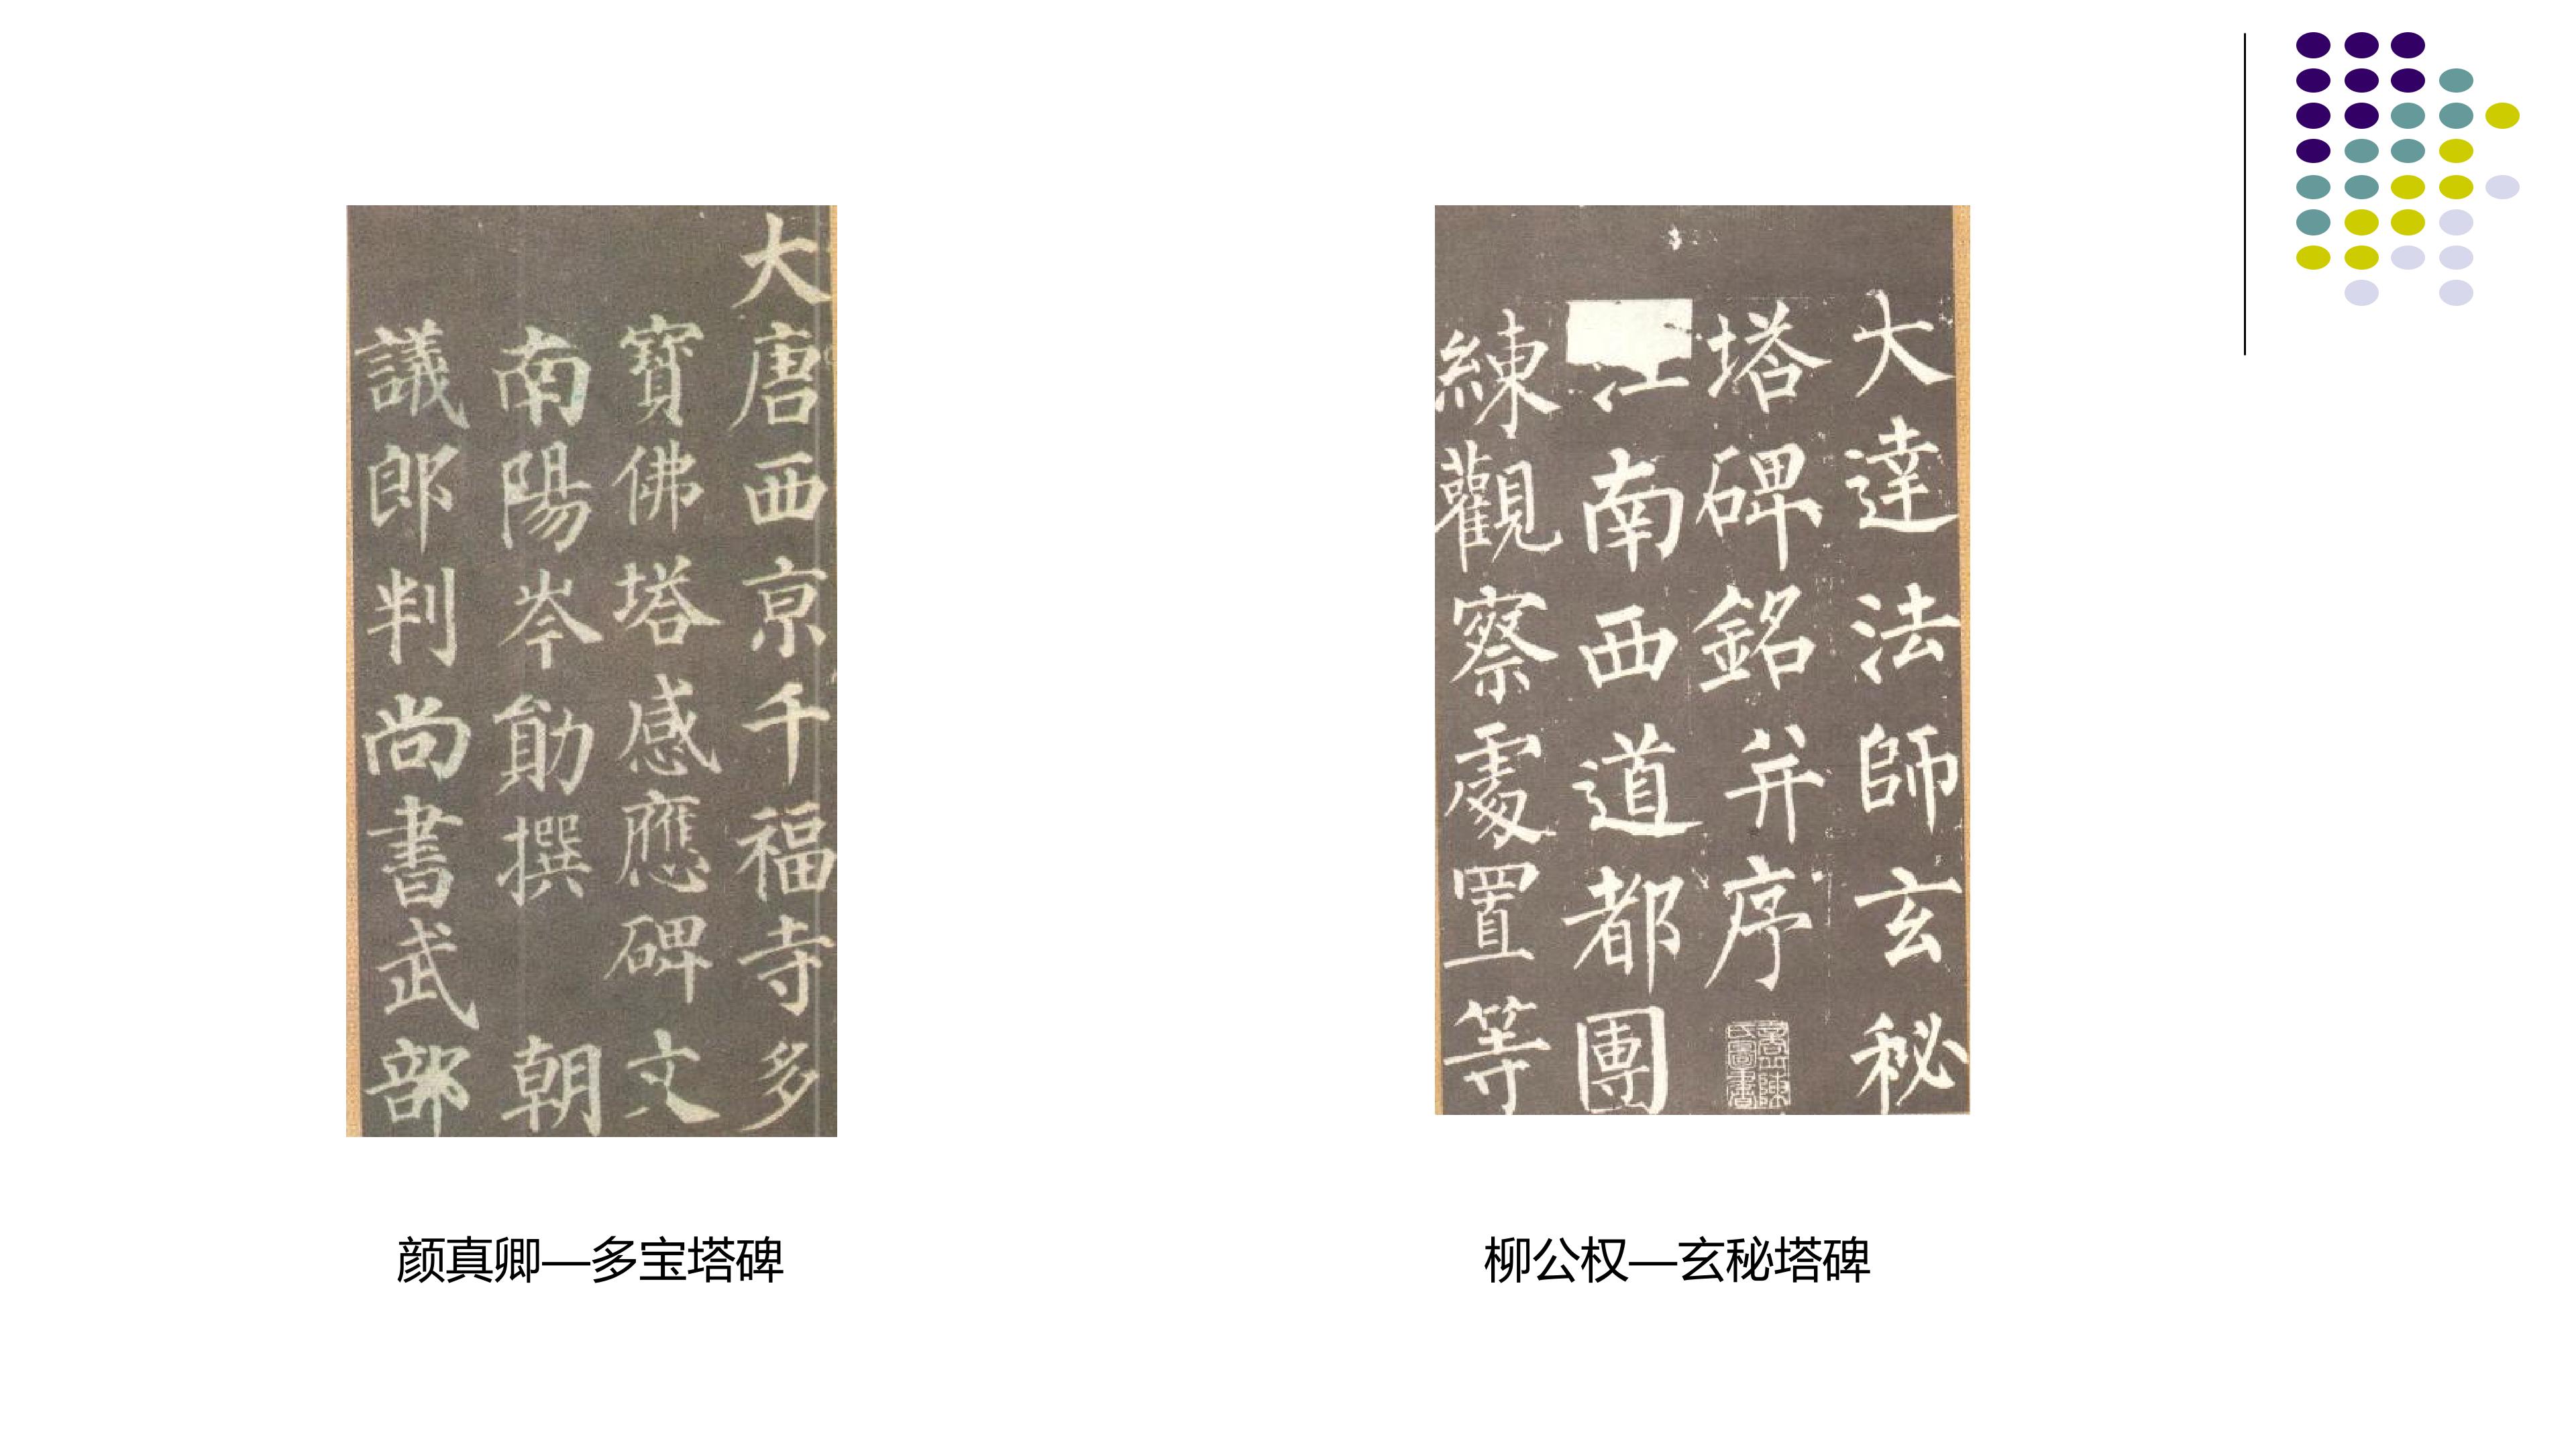 大唐西京千福寺多
寶佛塔感應碑文
南陽岑勛撰 朝
議郎判尚書武部
大達法師玄秘
塔碑銘并序
江南西道都團
練觀察處置等
颜真卿—多宝塔碑
柳公权—玄秘塔碑